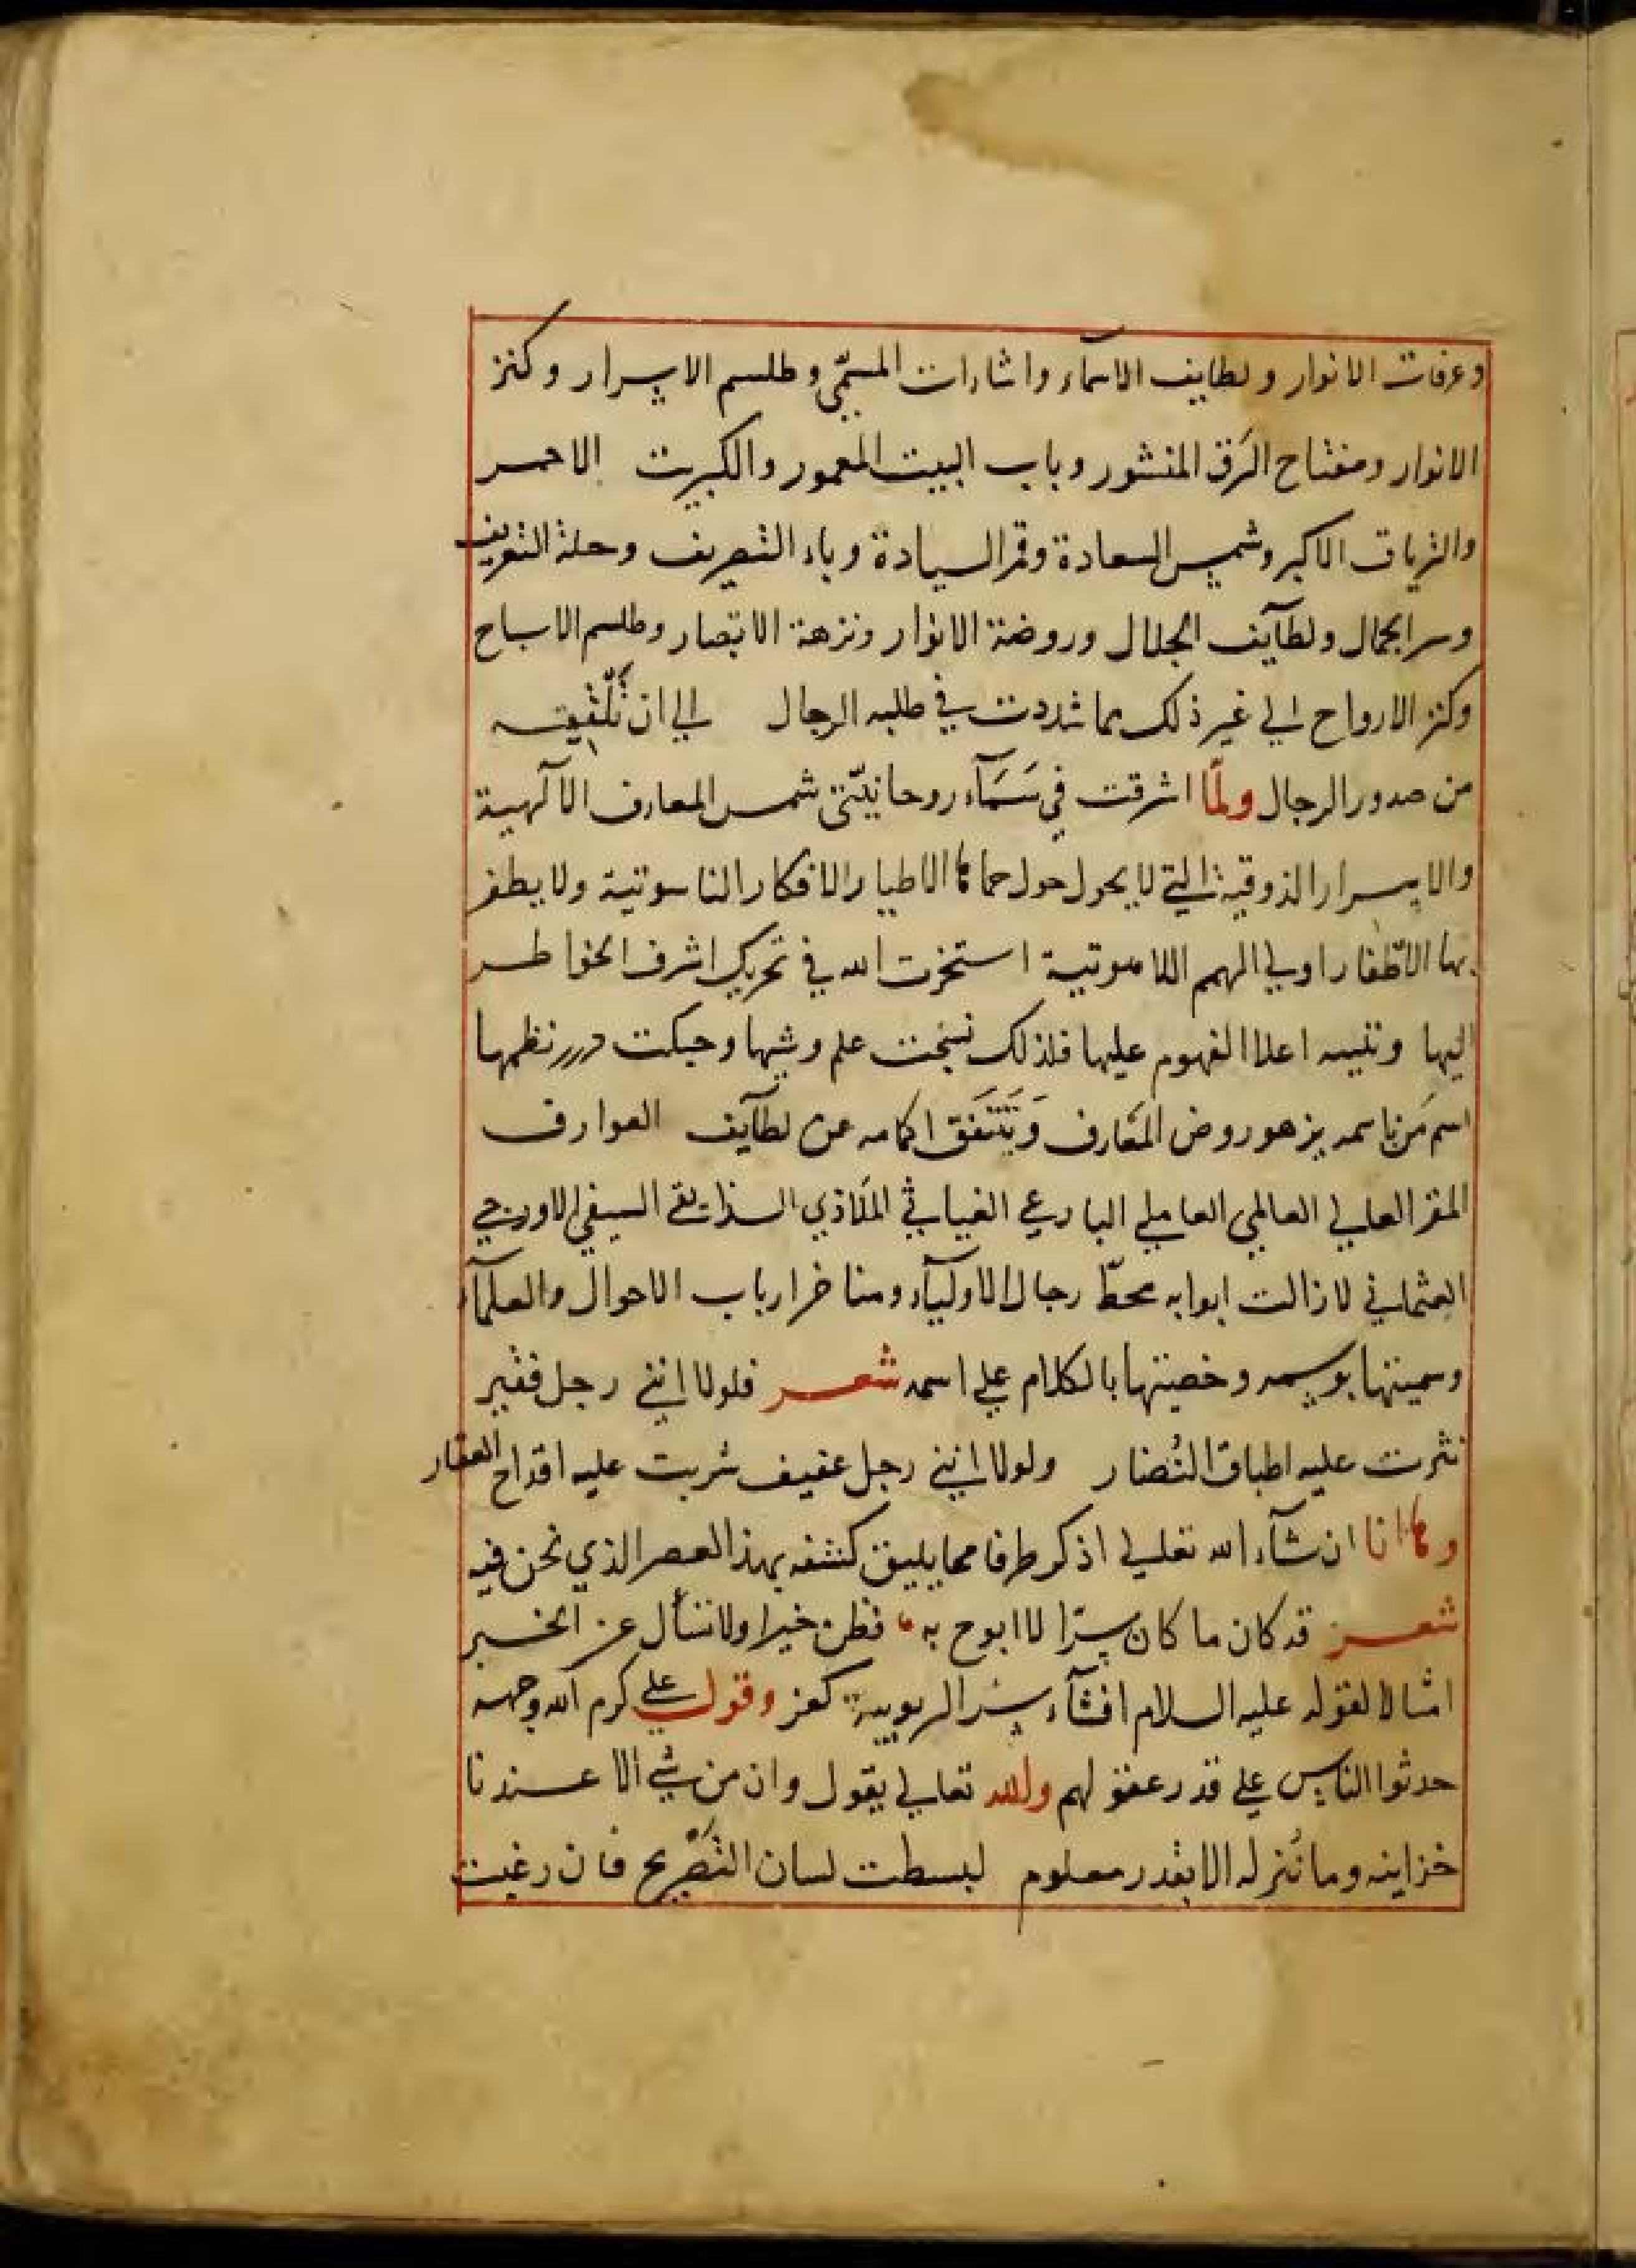 وعرفات الانوار ولطايف الاسمآء واشارات المسمّى وطلسم الاسرار وكنز
الانوار ومفتاح الرَق المنشور وباب البيت المعمور والكبريت الاحمر
والترياق الاكبر وشمس السعادة وقمر السيادة وباء التصريف وحلة التعريف
وسر الجمال ولطآيف الجلال وروضة الانوار ونزهة الابصار وطلسم الاشباح
وكنز الارواح الي غير ذلك مما شددت في طلبه الرحال الي ان تلّقيته
من صدور الرجال ولمّا اشرقت في سَمَآء روحانيّتي شمس المعارف الالهية
والاسرار الذوقية التي لا يحول حول حماها الاطيار الافكار الناسوتية ولا يظفر
بها الاظفار اولي الهمم اللاهوتية استخرت الله في تحريك اشرف الخواطر
اليها وتنبيه اعلا الفهوم عليها فلذلك نسجت علم وشيها وحبكت درر نظمها
اسم مَن باسمه يزهو روض المعَارف وَتَتَفَتق اكمامه عن لطآيف العوارف
المقر العالي العالمي العاملي البارعي الغياثي الملاذي السيفي
العثماني لا زالت ابوابه محطّ رحال الاوليآء ومناخ ارباب الاحوال والعلمآء
وسميتها بوسمه وخصيتها بالكلام علي اسمه شعر فلولا انني رجل فقير
نثرت عليه اطباق النُضار ولولا انني رجل عفيف شربت عليه اقداح العقار
وها انا ان شآء الله تعالي اذكر طرفا مما يليق كشفه بهذا العصر الذي نحن فيه
شعر قد كان ما كان سرّا لا ابوح به فظن خيرا ولا تسأل عن الخبر
امثالا لقوله عليه السلام افشآء سر الربوبية كفر وقول علي كرم الله وجهه
حدثوا الناس علي قدر عقولهم والله تعالي يقول وان من شي الا عندنا
خزاينه وما نُنزله الا بقدر معلوم لبسطت لسان التصريح فان رغبت